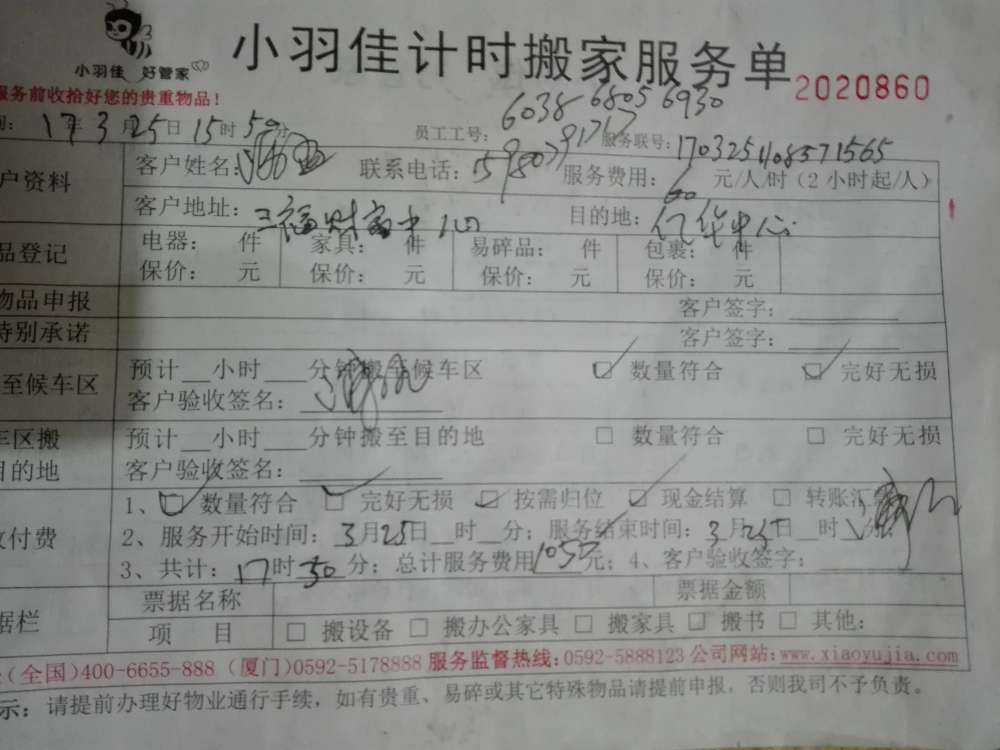 小羽佳 好管家
小羽佳计时搬家服务单 2020860
服务前收拾好您的贵重物品！ 6038 6805 6930
: 17年3月25日15时50分 员工工号: 服务联号:170325408571565
户资料 客户姓名: 联系电话: 服务费用: 60 元/人/时（2小时起/人）
客户地址: 三福财富中心 目的地: 亿华中心
品登记 电器: 件 家具: 件 易碎品: 件 包裹: 件
保价: 元 保价: 元 保价: 元 保价: 元
物品申报 客户签字:
特别承诺 客户签字:
至候车区 预计__小时___分钟搬至候车区 ☑ 数量符合 ☑ 完好无损
客户验收签名:
车区搬 预计__小时___分钟搬至目的地 □ 数量符合 □ 完好无损
目的地 客户验收签名:
1、☑ 数量符合 ☑ 完好无损 ☑ 按需归位 ☑ 现金结算 □ 转账汇
付费 2、服务开始时间: 3月25日__时__分; 服务结束时间: 3月25日__时__分
3、共计: 17时30分; 总计服务费用1050元; 4、客户验收签字:
据栏 票据名称 票据金额
项 目 □ 搬设备 □ 搬办公家具 □ 搬家具 □ 搬书 □ 其他:
(全国)400-6655-888 (厦门)0592-5178888 服务监督热线:0592-5888123 公司网站:www.xiaoyujia.com
示: 请提前办理好物业通行手续，如有贵重、易碎或其它特殊物品请提前申报，否则我司不予负责。